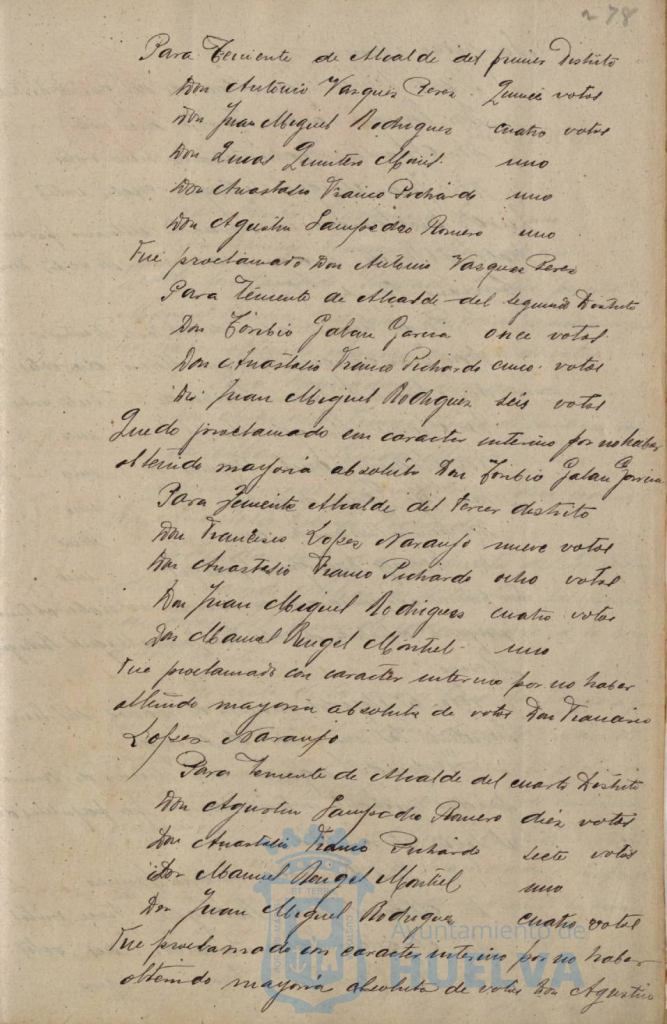 78
Para Teniente de Alcalde del primer Distrito
Don Antonio Vasquez Perez Quince votos
Don Juan Miguel Rodriguez cuatro votos
Don Lucas Quintero uno
Don Anastasio Franco Pichardo uno
Don Agustin Sampedro Romero uno
Fue proclamado Don Antonio Vasquez Perez
Para Teniente de Alcalde del segundo Distrito
Don Toribio Galan Garcia once votos
Don Anastasio Franco Pichardo cinco votos
Juan Miguel Rodriguez seis votos
Quedo proclamado con caracter interino por no haber
obtenido mayoria absoluta Don Toribio Galan Garcia
Para Teniente Alcalde del tercer distrito
Don Francisco Lopez Naranjo nueve votos
Don Anastasio Franco Pichardo ocho votos
Don Juan Miguel Rodriguez cuatro votos
Don Manuel Rengel Montiel uno
Fue proclamado con caracter interino por no haber
obtenido mayoria absoluta de votos Don Francisco
Lopez Naranjo
Para Teniente de Alcalde del cuarto Distrito
Don Agustin Sampedro Romero diez votos
Don Anastasio Franco Pichardo siete votos
Don Manuel Rengel Montiel uno
Don Juan Miguel Rodriguez cuatro votos
Fue proclamado con caracter interino por no haber
obtenido mayoria absoluta de votos Don Agustin
Ayuntamiento de
HUELVA